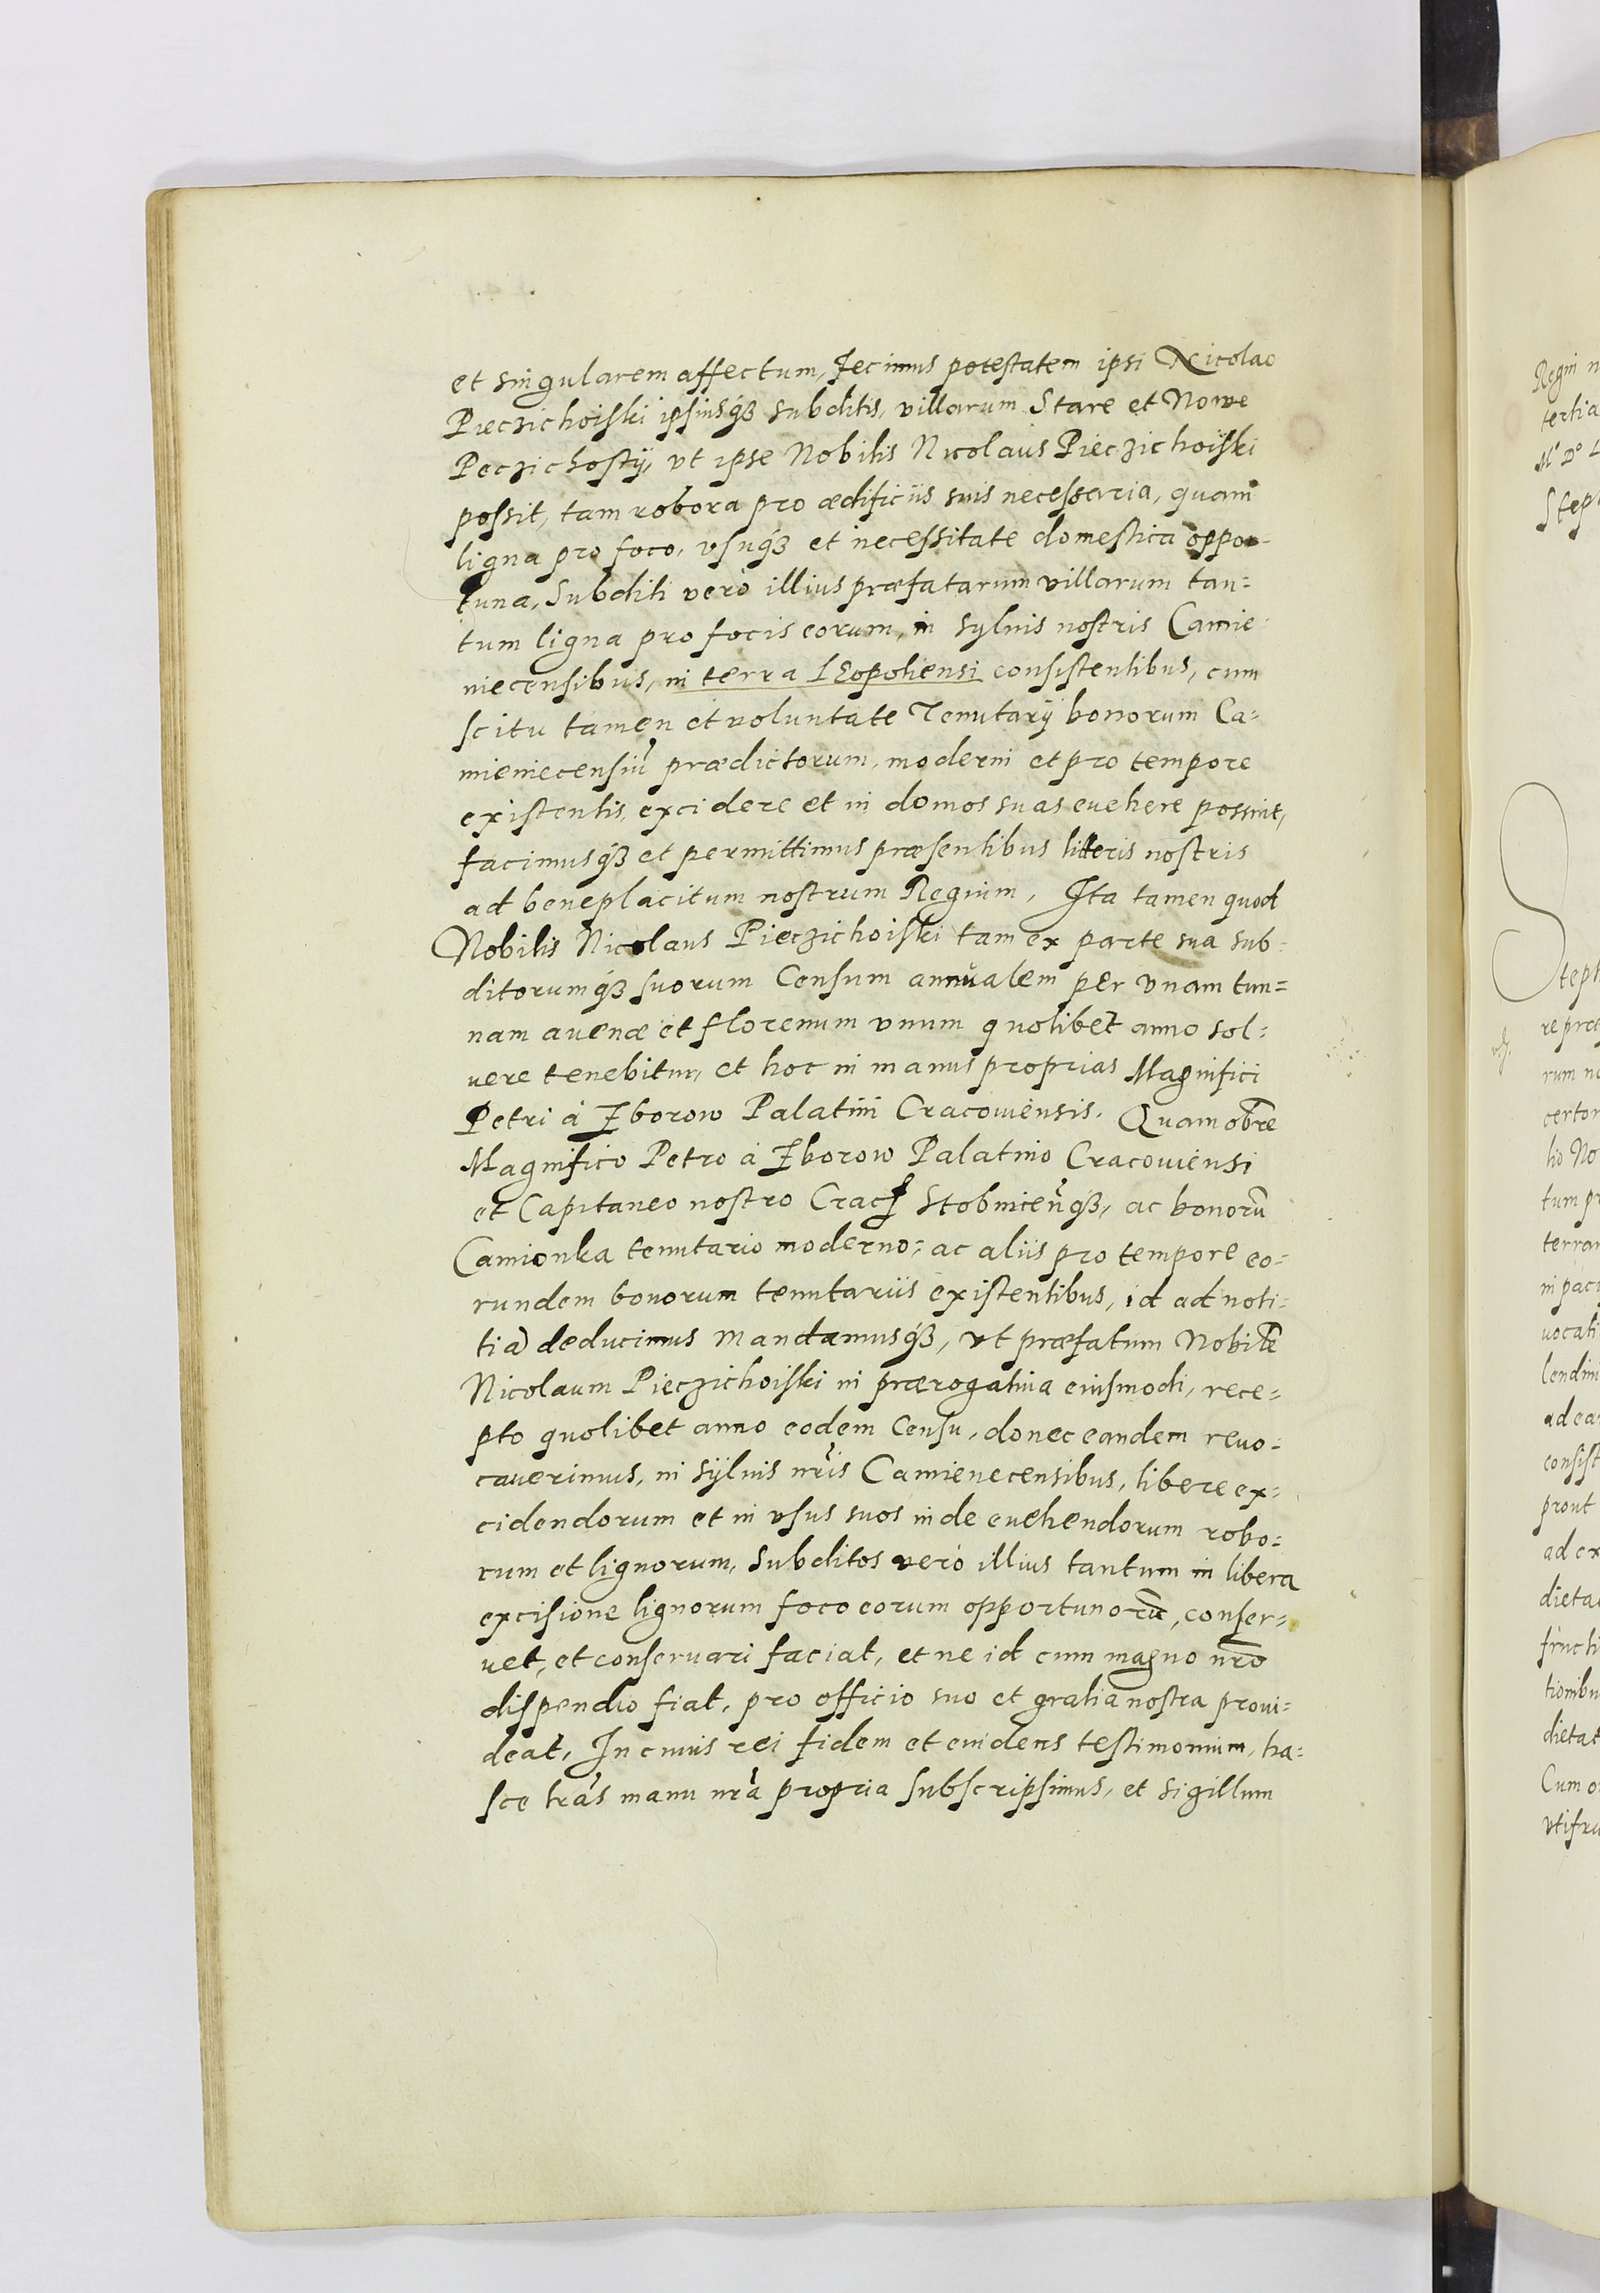 et singularem affectum, Fecimus potestatem ipsi Nicolao
Pieczichoiſki ipſiusqꝫ subditis, villarum Stare et Nowe
Peczichosty, vt ipse Nobilis Nicolaus Pieczichoiſki
poſsit, tam robora pro ædificiis suis neceſsaria, quam
ligna pro foco, vſuqꝫ et neceſsitate domestica oppor-
tuna, Subditi verò illius præfatarum villarum tan=
tum ligna pro focis eorum, in sylvis nostris Camie-
niecensibus, in terra LEopoliensi consistentibus, cum
scitu tamen et voluntate Tenutarÿ bonorum Ca=
mieniecensiũ prædictorum, moderni et pro tempore
existentis, excidere et in domos suas euehere possint,
facimusqꝫ et permittimus præsentibus litteris nostris
ad beneplacitum nostrum Regium, Ita tamen quod
Nobilis Nicolaus Pieczichoiſki tam ex parte sua sub=
ditorumqꝫ suorum Censum annualem per vnam tun=
nam avenæ et florenum vnum quolibet anno sol=
uere tenebitur, et hoc in manus proprias Magnifici
Petri à Zborow Palatini Cracouiensis. Quam obrē
Magnifico Petro à Zborow Palatino Cracouiensi
et Capitaneo nostro Crac: Stobnicen̄qꝫ, ac bonorū
Camionka tenutario moderno, ac aliis pro tempore eo=
rundem bonorum tenutariis existentibus, id ad noti-
tiã deducimus mandamusqꝫ, vt præfatum Nobilē
Nicolaum Pieczichoiſki in prærogatiua eiusmodi, rece=
pto quolibet anno eodem Censu, donec eandem reuo=
cauerimus, in sÿluis nr̃is Camienecensibus, libere ex=
cidendorum et in vsus suos inde euehendorum robo=
rum et lignorum, subditos verò illius tantum in libera
excisione lignorum foco eorum opportunorū, conser=
uet, et conseruari faciat, et ne id cum magno nr̄o
dispendio fiat, pro officio suo et gratia nostra proui=
deat, In cuius rei fidem et euidens testimonium, ha=
sce lr̃as manu nr̃a propria subscripsimus, et sigillum